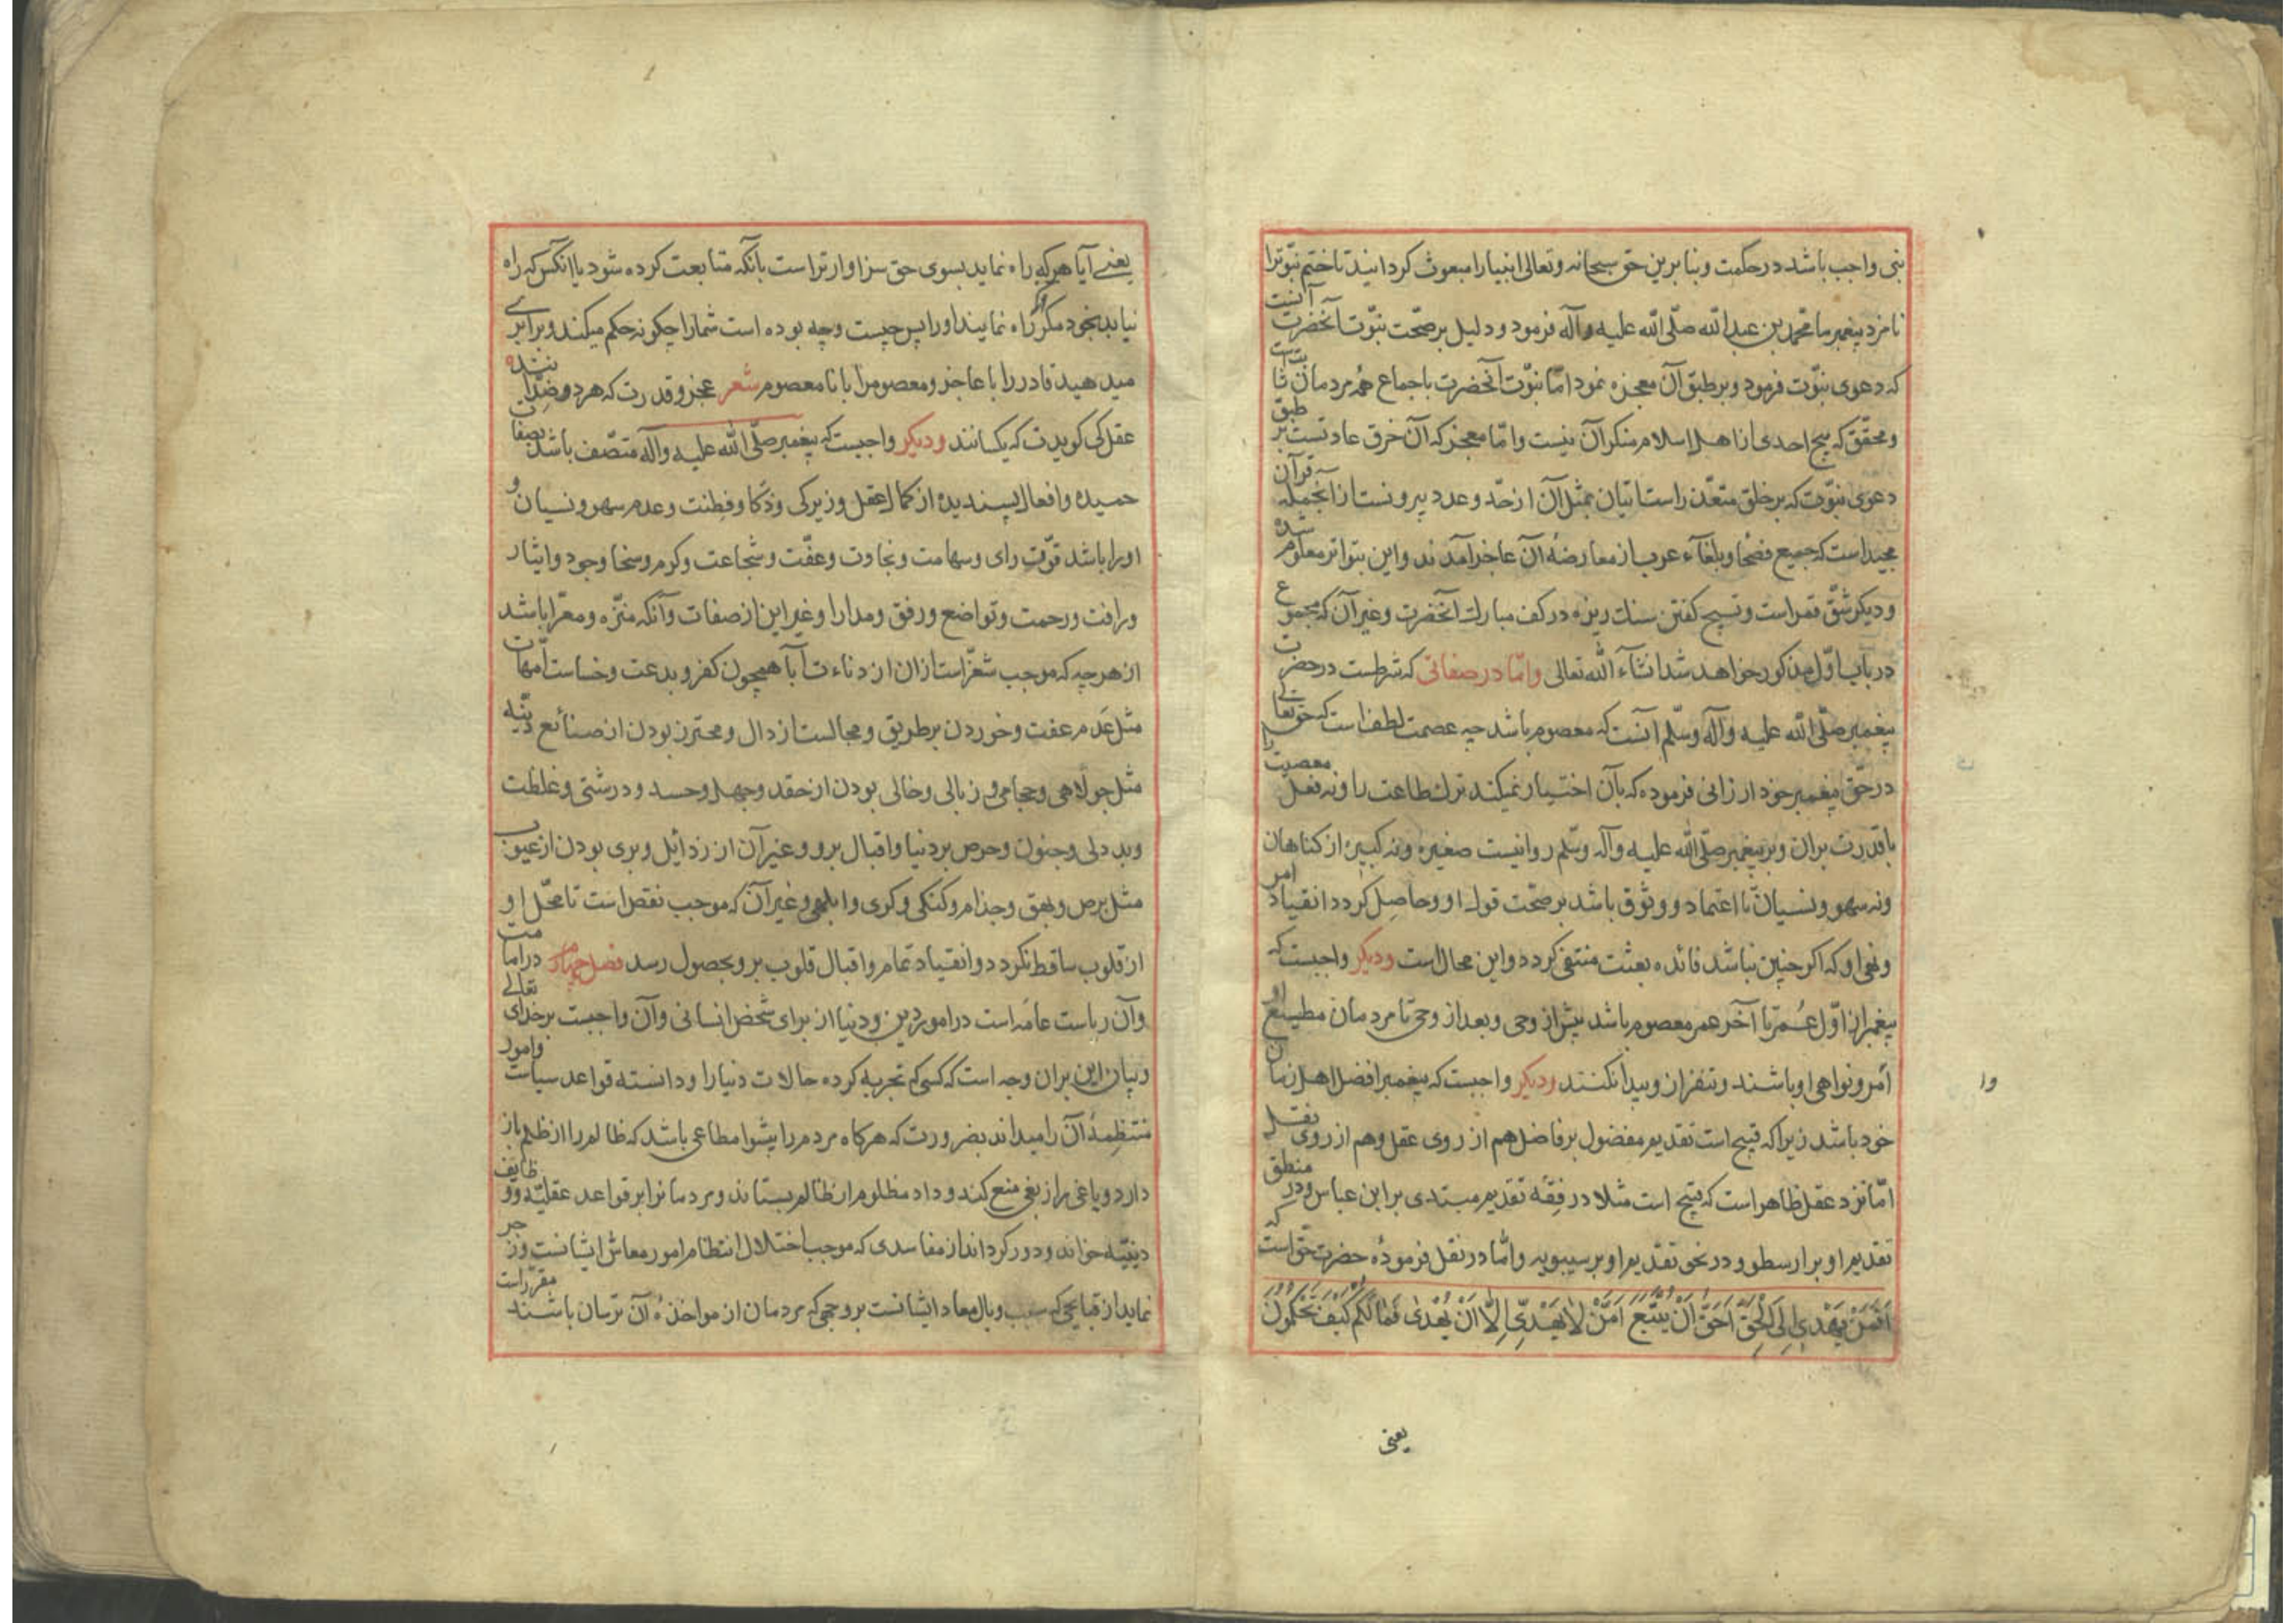 نبی واجب باشد در حکمت و بنا برین حق سبحانه و تعالی انبیا را مبعوث کردانید تا ختم نبوّت را
نامزد پیغمبر ما محمّد بن عبد الله صلّی الله علیه وآله فرمود و دلیل بر صحّت نبوّت آنحضرت آنست
که دعوی نبوّت فرمود و بر طبق آن معجزه نمود امّا نبوّت آنحضرت باجماع همهٔ مردمان ثابت
و محقّق که هیچ احدی از اهل اسلام منکر آن نیست و امّا معجز که آن خرق عادتست بر طبق
دعوی نبوّت که بر خلق متعذّر است اتیان بمثل آن از حدّ و عدد بیرونست از آنجمله قرآن
مجید است که جمیع فصحا و بلغآء عرب از معارضهٔ آن عاجز آمدند و این بتواتر معلوم شده
و دیکر شقّ قمر است و تسبیح کفتن سنك ریزه در کف مبارك آنحضرت و غیر آن که مجموع
در باب اوّل مذکور خواهد شد انشآء الله تعالی وامّا در صفاتی که شرطست در حضرت
پیغمبر صلّی الله علیه وآله وسلّم آنست که معصوم باشد چه عصمت لطف است که حقتعالی
در حقّ پیغمبر خود ارزانی فرموده که بآن اختیار نمیکند ترك طاعت را و نه فعل معصیت را
با قدرت بر ان و بر پیغمبر صلّی الله علیه وآله وسلّم روا نیست صغیره و نه کبیره از کناهان
و نه سهو و نسیان تا اعتماد و وثوق باشد بر صحّت قول او و حاصل کردد انقیاد امر
و نهی او که اکر چنین نباشد فائده بعثت منتفی کردد و این محال است ودیکر واجبست که
پیغمبر از اوّل عُمر تا آخر عمر معصوم باشد پیش از وحی و بعد از وحی تا مردمان مطیع او
امر و نواهی او باشند و تنفر ازو پیدا نکنند ودیکر واجبست که پیغمبر افضل اهل زمان
خود باشد زیرا که قبیح است تقدیم مفضول بر فاضل هم از روی عقل و هم از روی نقل
امّا نزد عقل ظاهر است که قبیح است مثلا در فقه تقدیم مبتدی بر ابن عباس و در منطق
تقدیم او بر ارسطو و در نحو تقدیم او بر سیبویه و امّا در نقل فرمودهٔ حضرت حق است که
اَفَمَنْ یَهْدِی اِلَی الْحَقِّ اَحَقُّ اَنْ یُتَّبَعَ اَمَّنْ لَا یَهِدِّی اِلَّا اَنْ یُهْدٰی فَمَا لَکُمْ کَیْفَ تَحْکُمُونَ
یعنی
وا
یعنے آیا هر که راه نماید بسوی حق سزاوارتر است بآنکه متابعت کرده شود یا انکس که راه
نیابد بخود مکر که راه نمایند او را پس چیست و چه بوده است شما را چکونه حکم میکنید و برابری
میدهید قادر را با عاجز و معصوم را با نا معصوم شعر عجز و قدرت که هر دو ضدّانند
عقل کی کویدت که یکسانند ودیکر واجبست که پیغمبر صلّی الله علیه وآله متّصف باشد بصفات
حمیده و افعال پسندیده از کمال عقل و زیرکی و ذکا و فطنت و عدم سهو و نسیان و
او را باشد قوّت رای و سهامت و نجاوت و عفّت و شجاعت و کرم و سخا وجود و ایثار
و رافت و رحمت و تواضع و رفق و مدارا و غیر این از صفات و آنکه منزّه و معرّا باشد
از هر چه که موجب شعرّ است ازان از دناءت آبا همچون کفر و بدعت و خساست امّهات
مثل عَدم عفت و خوردن بر طریق و مجالست ازدال و محترز بودن از صنائع دنیّه
مثل جولاهی و حجامی و زبالی و خالی بودن از حقد و جهل و حسد و درشتی و غلظت
و بد دلی و جنون و حرص بر دنیا و اقبال برو و غیر آن از رذائل و بری بودن از عیوب
مثل برص و بهق و جذام و کنکی و کری و ابلهی و غیر آن که موجب نقص است تا محلّ او
از قلوب ساقط نکردد و انقیاد تمام و اقبال قلوب برو بحصول رسد فصل چهارم در امامت
و آن ریاست عامّه است در امور دین و دنیا از برای شخص انسانی و آن واجبست بر خدای تعالے
و بیان این بران وجه است که کسی که تجربه کرده حالات دنیا را و دانسته قواعد سیاست و امور
منتظمهٔ آن را میداند بضرورت که هرکاه مردم را پیشوا مطاعی باشد که ظالم را از ظلم باز
دارد و یاغی را از بغی منع کند و داد مظلوم از ظالم بستاند و مردمانرا بر قواعد عقلیّه و وظایف
دینیّه خواند و دور کرداند از مفاسدی که موجب اختلال انتظام امور معاش ایشانست و زجر
نماید از قبایحی که سبب وبال معاد ایشانست بر وجهی که مردمان از مواخذهٔ آن ترسان باشند مقرّر است